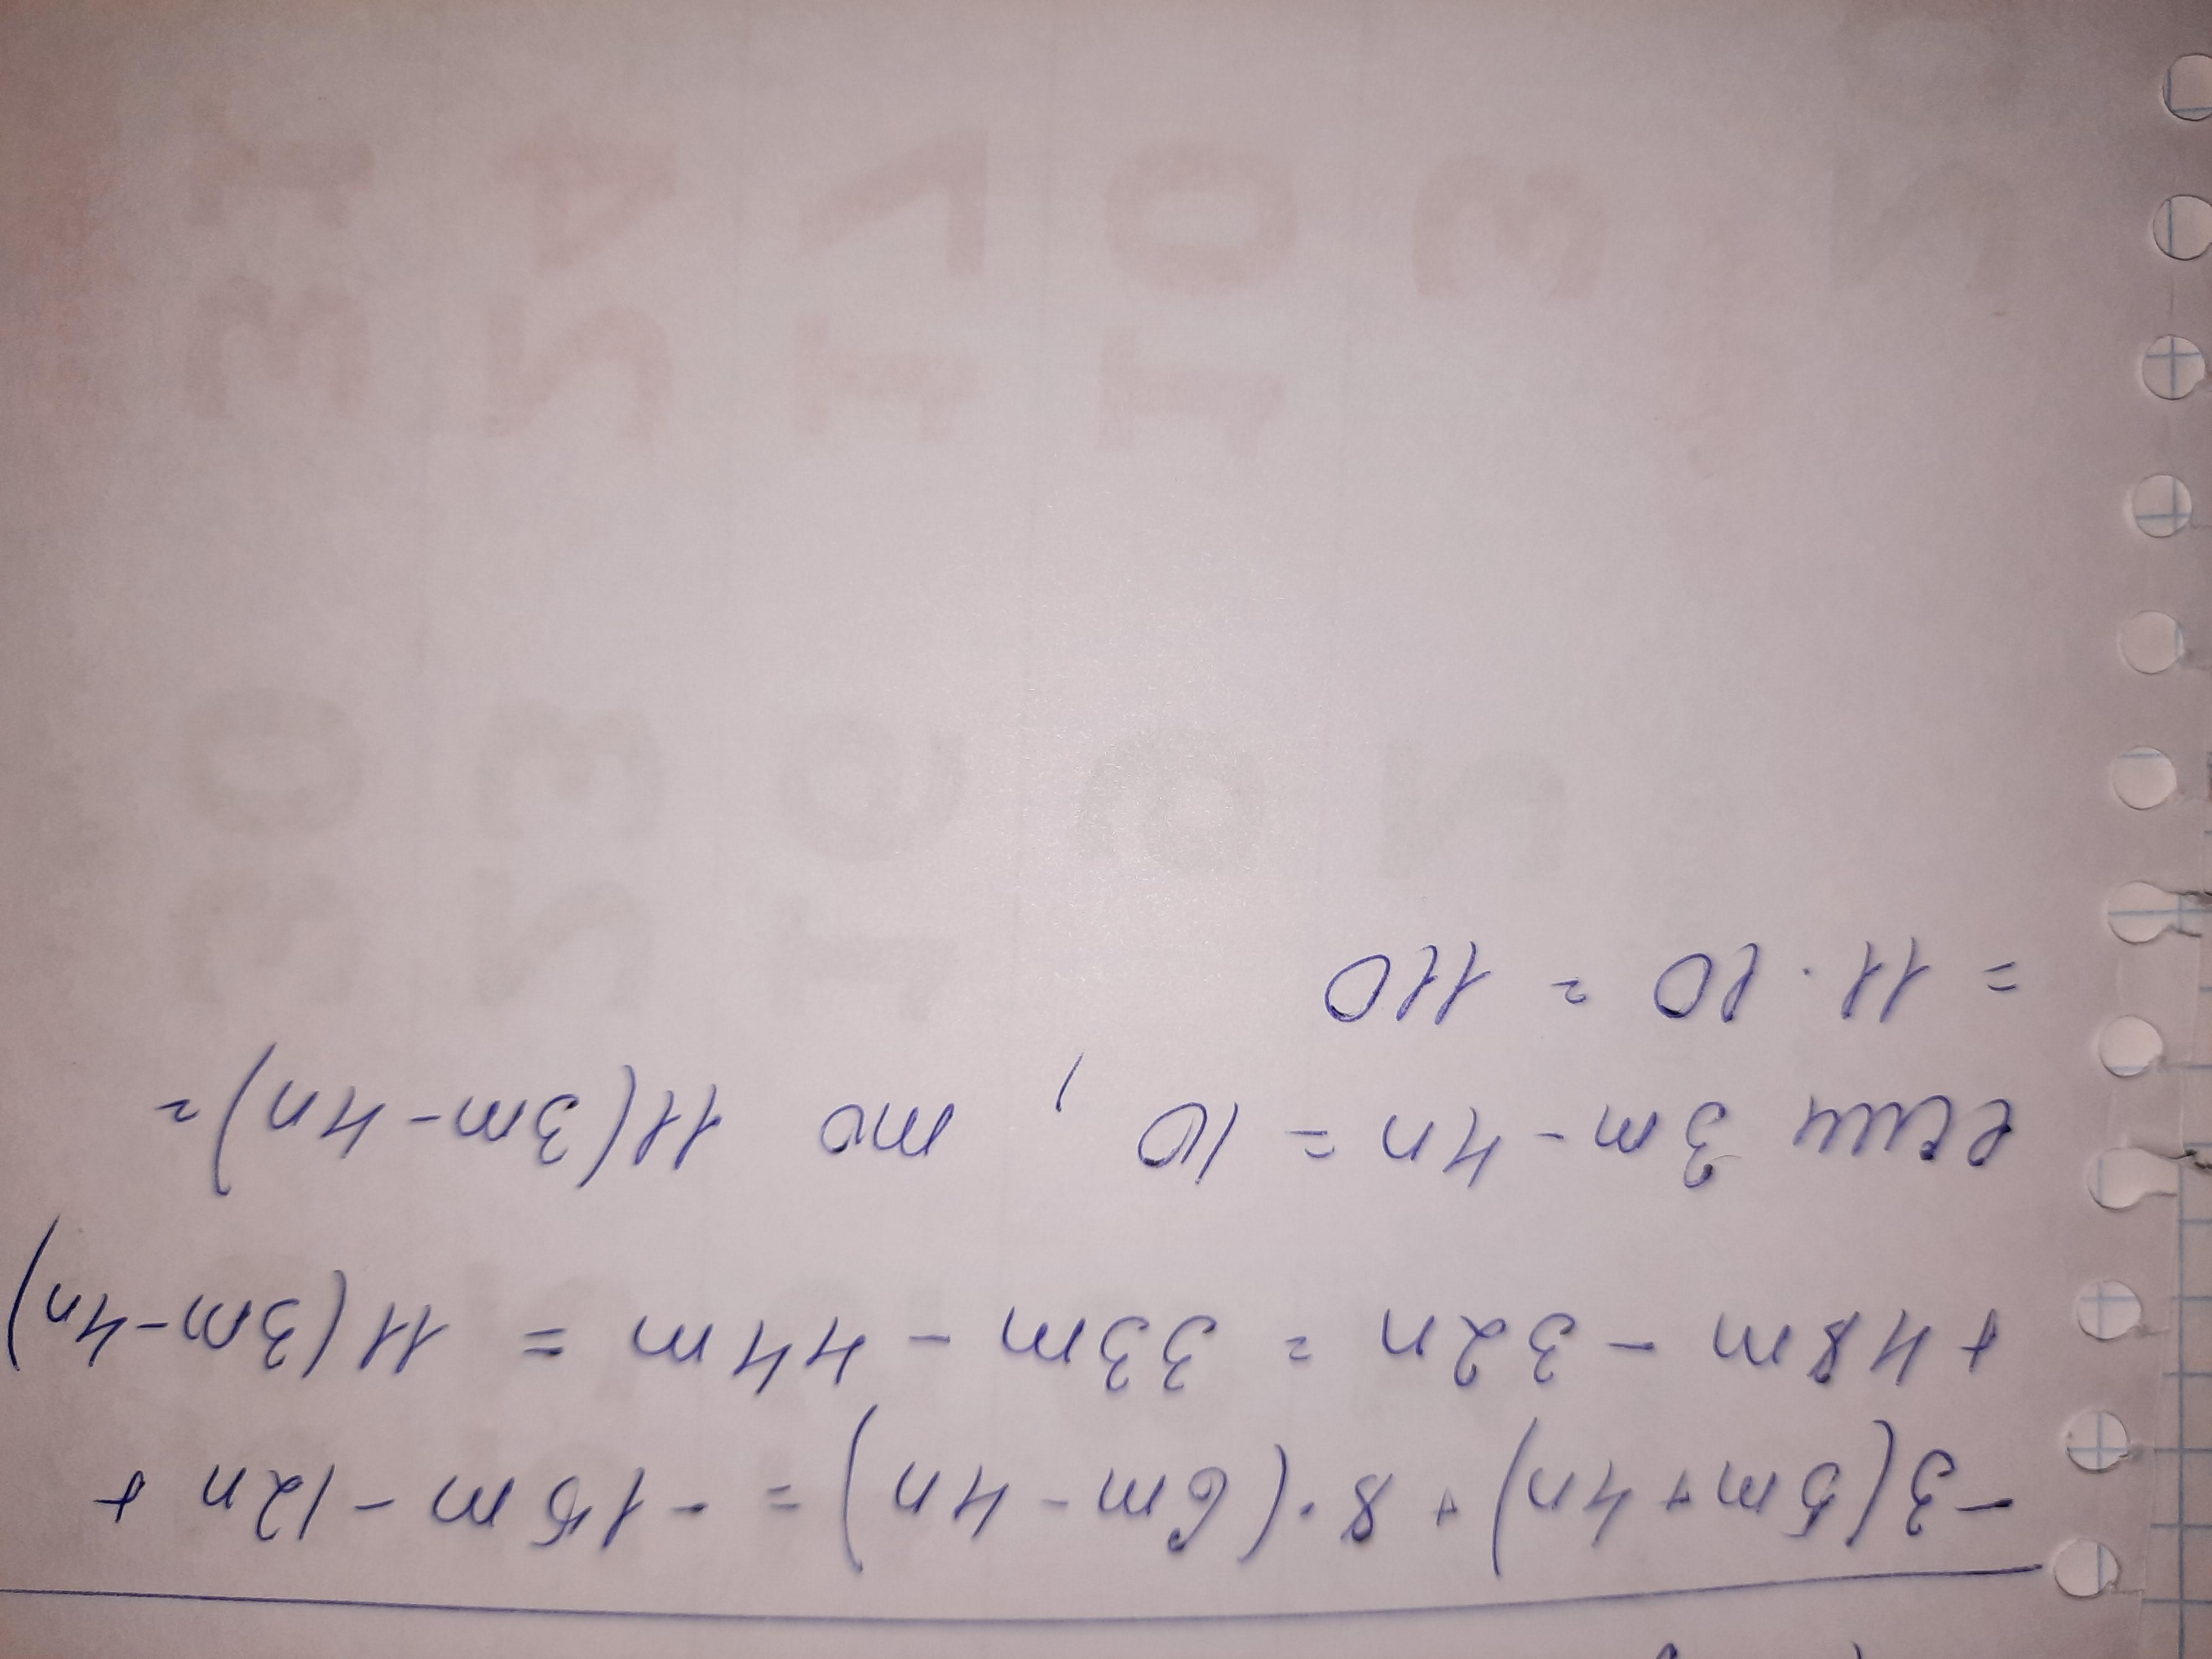 -3(5m+4n)+8·(6m-4n)=-15m-12n+
+48m-32n=33m-44m=11(3m-4n)
если 3m-4n=10, то 11(3m-4n)=
=11·10=110